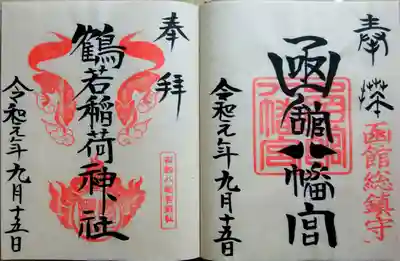 奉拝
函館総鎮守
函館八幡宮
令和元年九月十五日
奉拝
鶴若稲荷神社
令和元年九月十五日